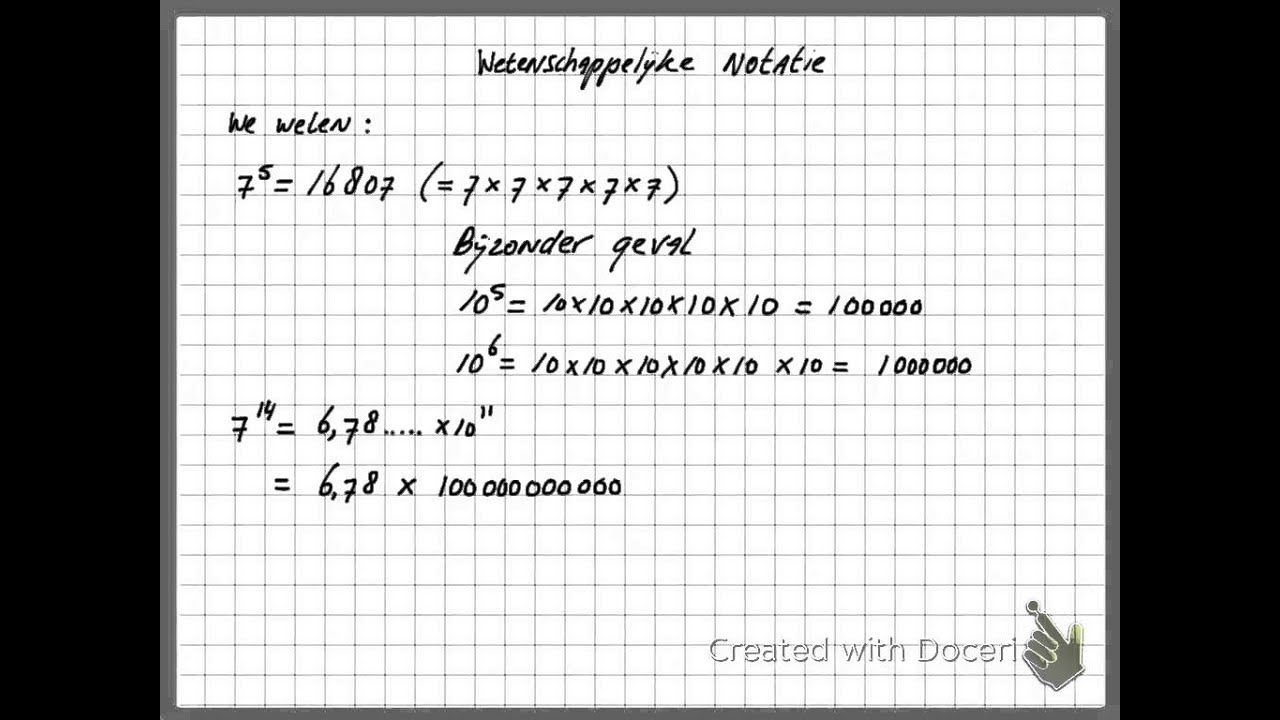 Wetenschappelijke Notatie
We weten :
7⁵ = 16807 (= 7 × 7 × 7 × 7 × 7)
Bijzonder geval
10⁵ = 10×10×10×10×10 = 100000
10⁶ = 10×10×10×10×10 ×10 = 1000000
7¹⁴ = 6,78..... ×10¹¹
= 6,78 × 100000000000
Created with Doceri